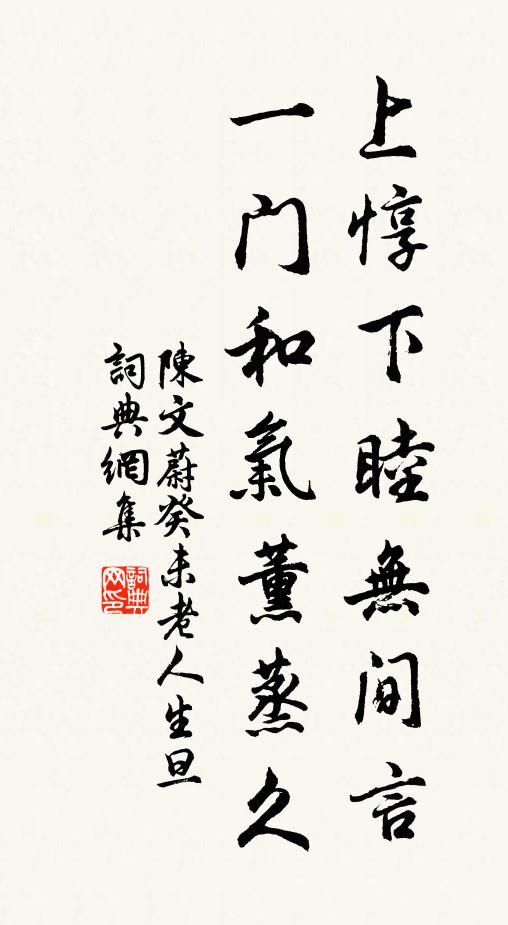 上惇下睦無間言
一門和氣薰蒸久
陳文蔚癸未老人生旦
詞典網集
詞典網印